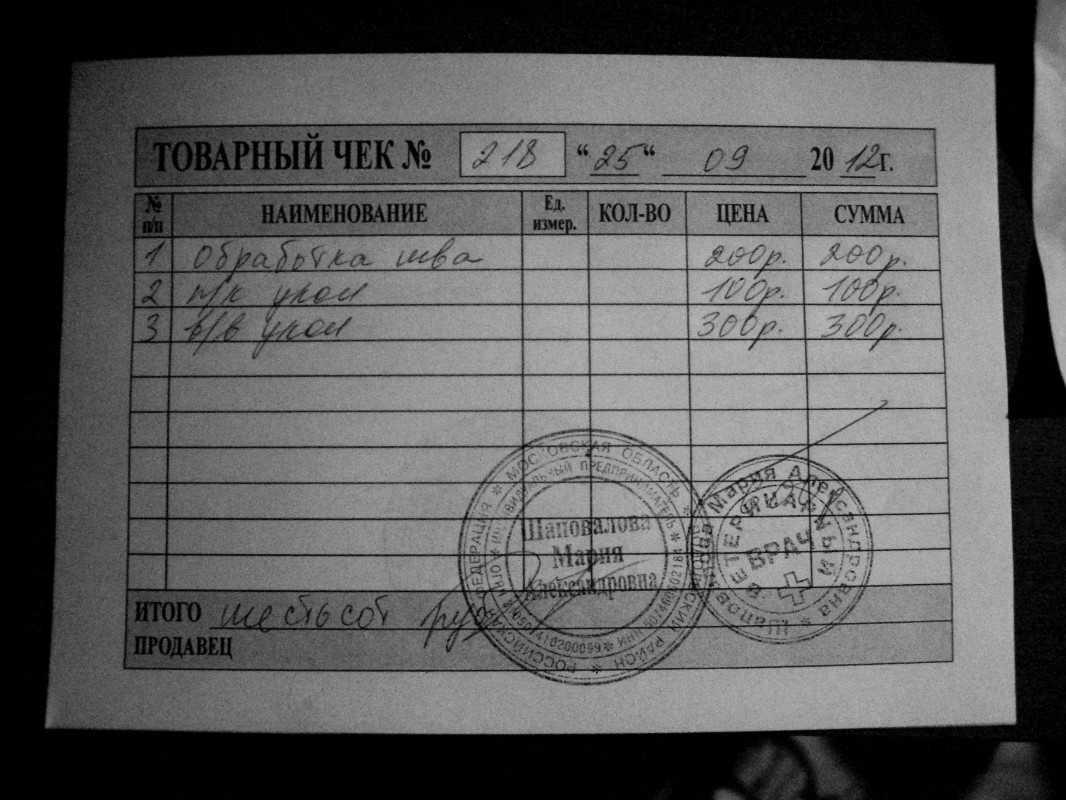 ТОВАРНЫЙ ЧЕК № 218 “25“ 09 2012г.
№ п/п НАИМЕНОВАНИЕ Ед. измер. КОЛ-ВО ЦЕНА СУММА
1 Обработка шва 200р. 200р.
2 п/к укол 100р. 100р.
3 в/в укол 300р. 300р.
ИТОГО шестьсот руб
ПРОДАВЕЦ
РОССИЙСКАЯ ФЕДЕРАЦИЯ * МОСКОВСКАЯ ОБЛАСТЬ * РАЙОН *
ИНДИВИДУАЛЬНЫЙ ПРЕДПРИНИМАТЕЛЬ * ИНН * ОГРН
Шаповалова
Мария
Александровна
Шаповалова Мария Александровна *
ВЕТЕРИНАРНЫЙ
ВРАЧ